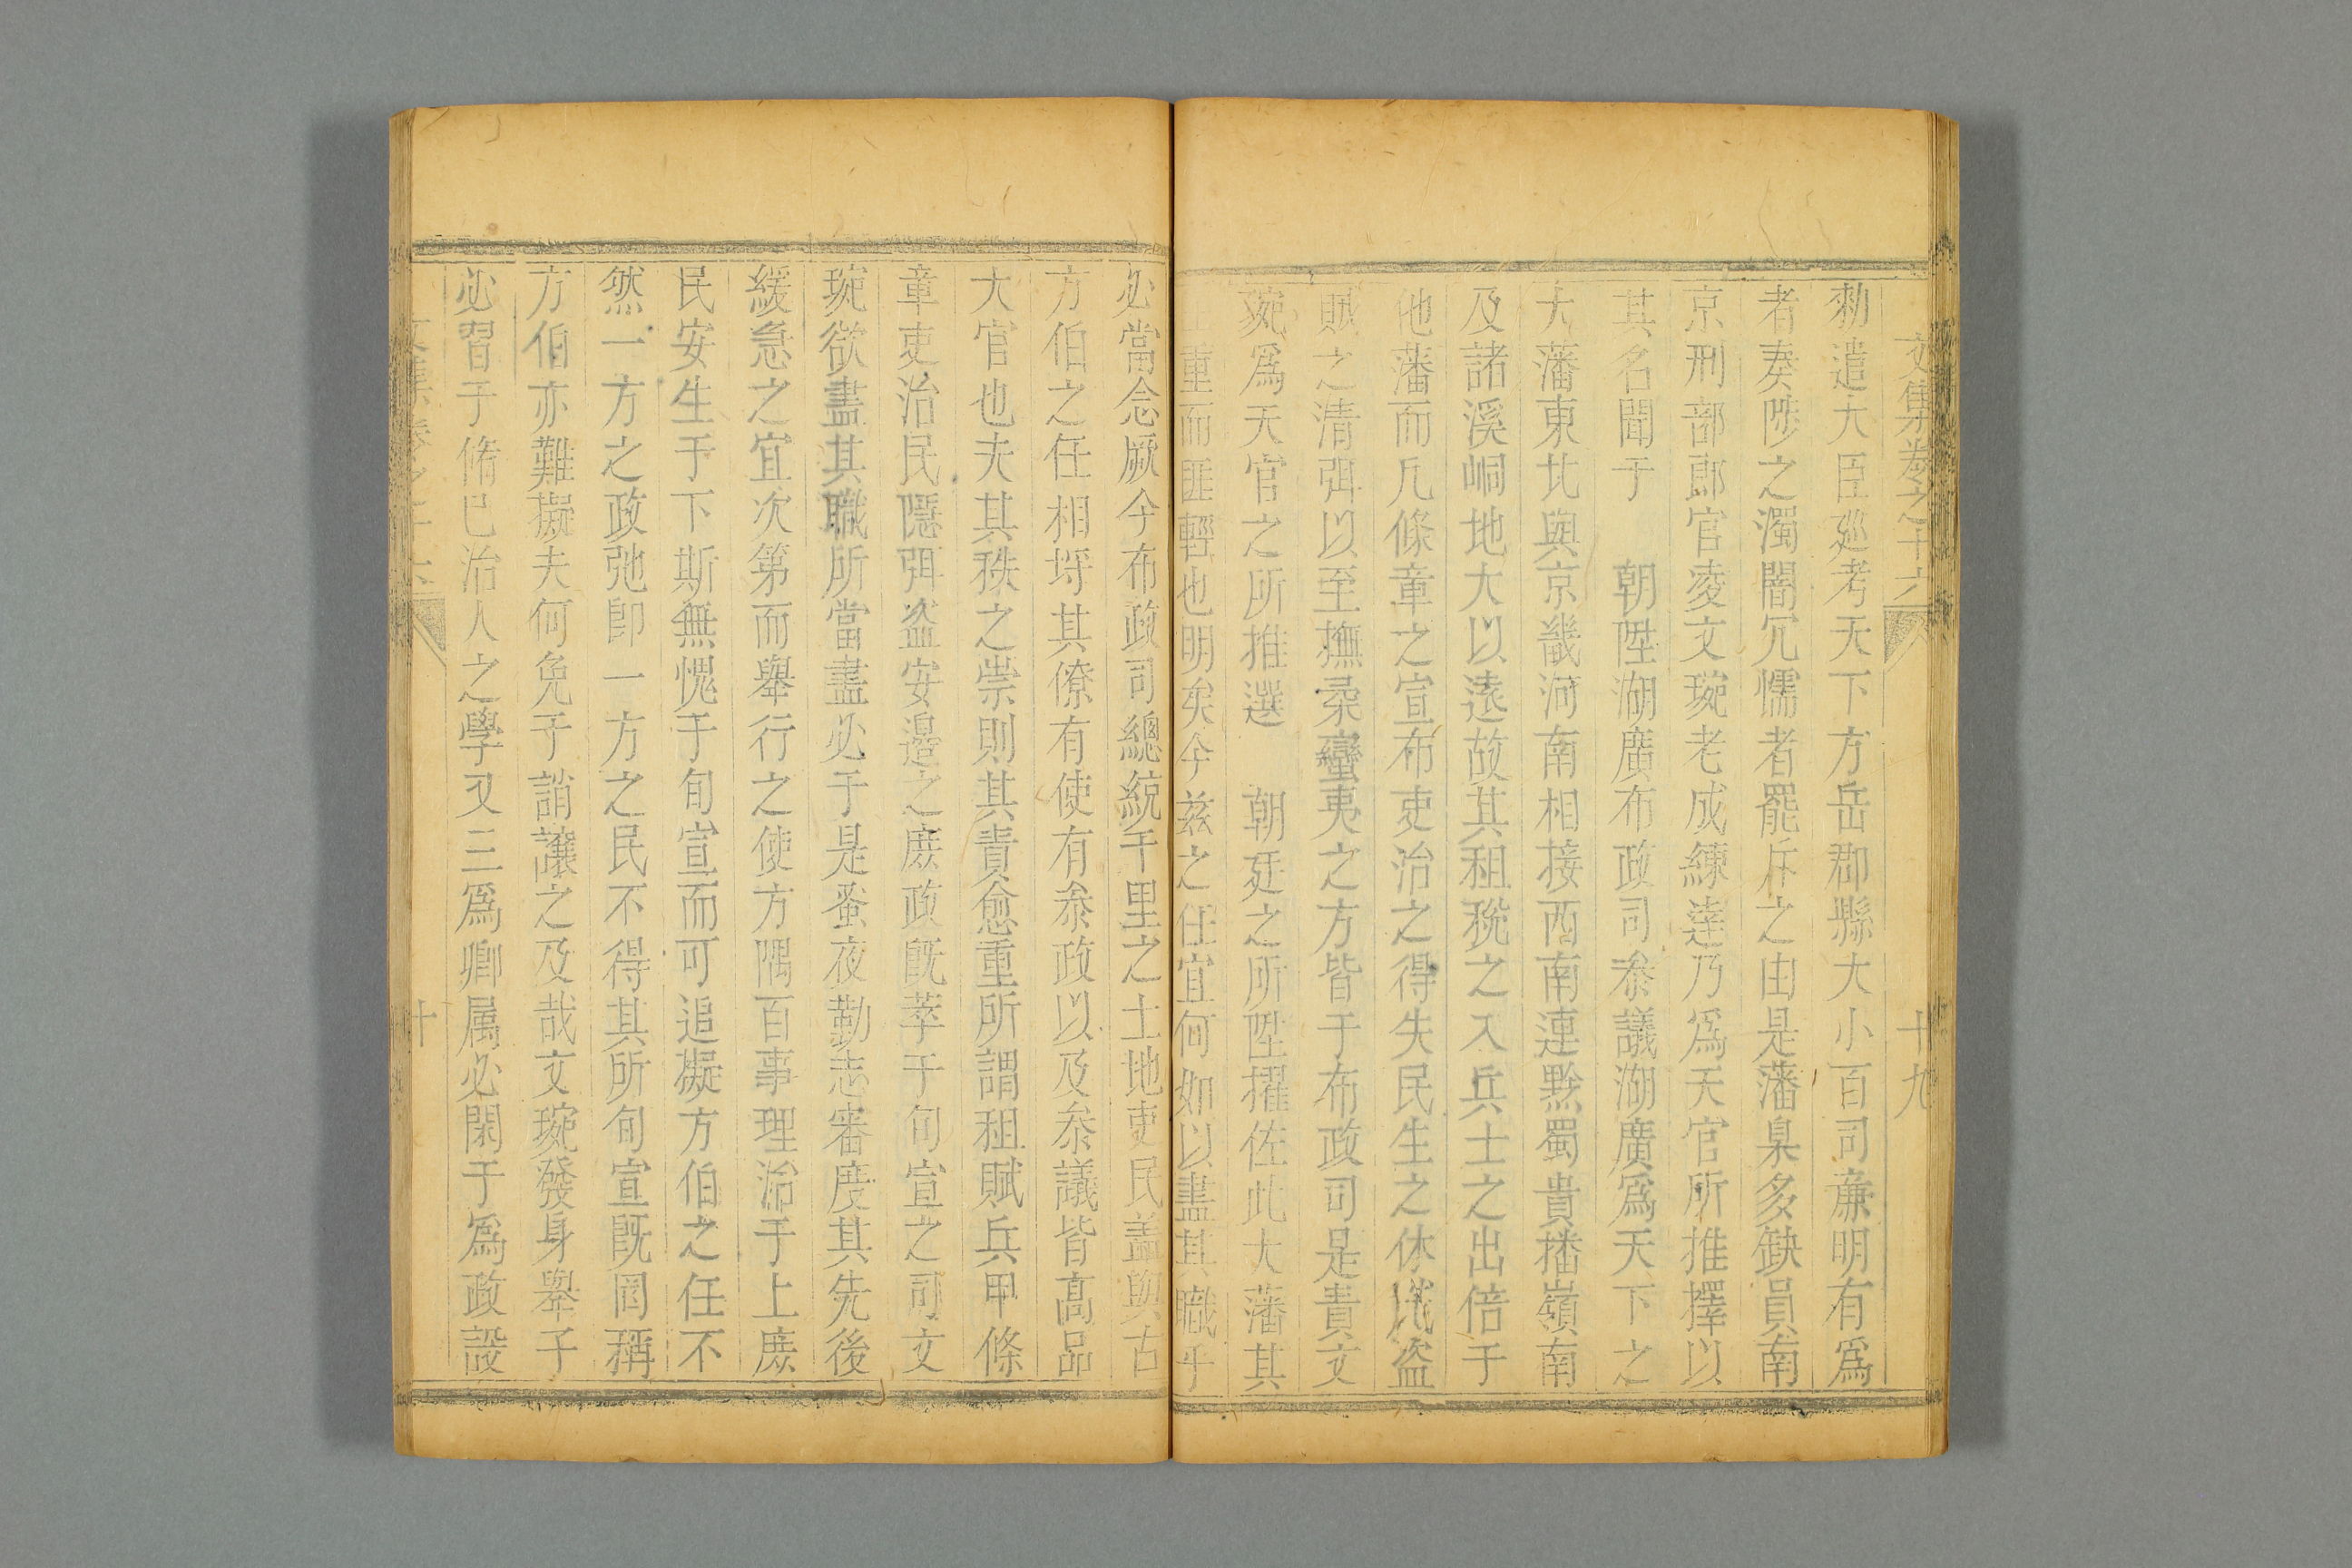 文集卷之十六 十九
勑遣大臣廵考天下方岳郡縣大小百司亷明有爲
者奏陟之濁闇冗懦者罷斥之由是藩臬多缺員南
京刑部郎官凌文琬老成練達乃爲天官所推擇以
其名聞于 朝陞湖廣布政司叅議湖廣爲天下之
大藩東北與京畿河南相接西南連黔蜀貴播嶺南
及諸溪峒地大以遠故其租稅之入兵士之出倍于
他藩而凡條章之宣布吏治之得失民生之休慽盜
賊之清弭以至撫柔蠻夷之方皆于布政司是責文
琬爲天官之所推選 朝廷之所陞擢佐此大藩其
重而匪輕也明矣今兹之任宜何如以盡其職乎
必當念厥今布政司總統千里之土地吏民盖與古
方伯之任相埒其僚有使有叅政以及叅議皆高品
大官也夫其秩之崇則其責愈重所謂租賦兵甲條
章吏治民隱弭盜安邊之庶政旣萃于旬宣之司文
琬欲盡其職所當盡必于是蚤夜勤志審度其先後
緩急之宜次第而舉行之使方隅百事理治于上庶
民安生于下斯無愧于旬宣而可追擬方伯之任不
然一方之政弛卽一方之民不得其所旬宣旣罔稱
方伯亦難擬夫何免于誚讓之及哉文琬發身舉子
必習于脩已治人之學又三爲卿属必閑于爲政設